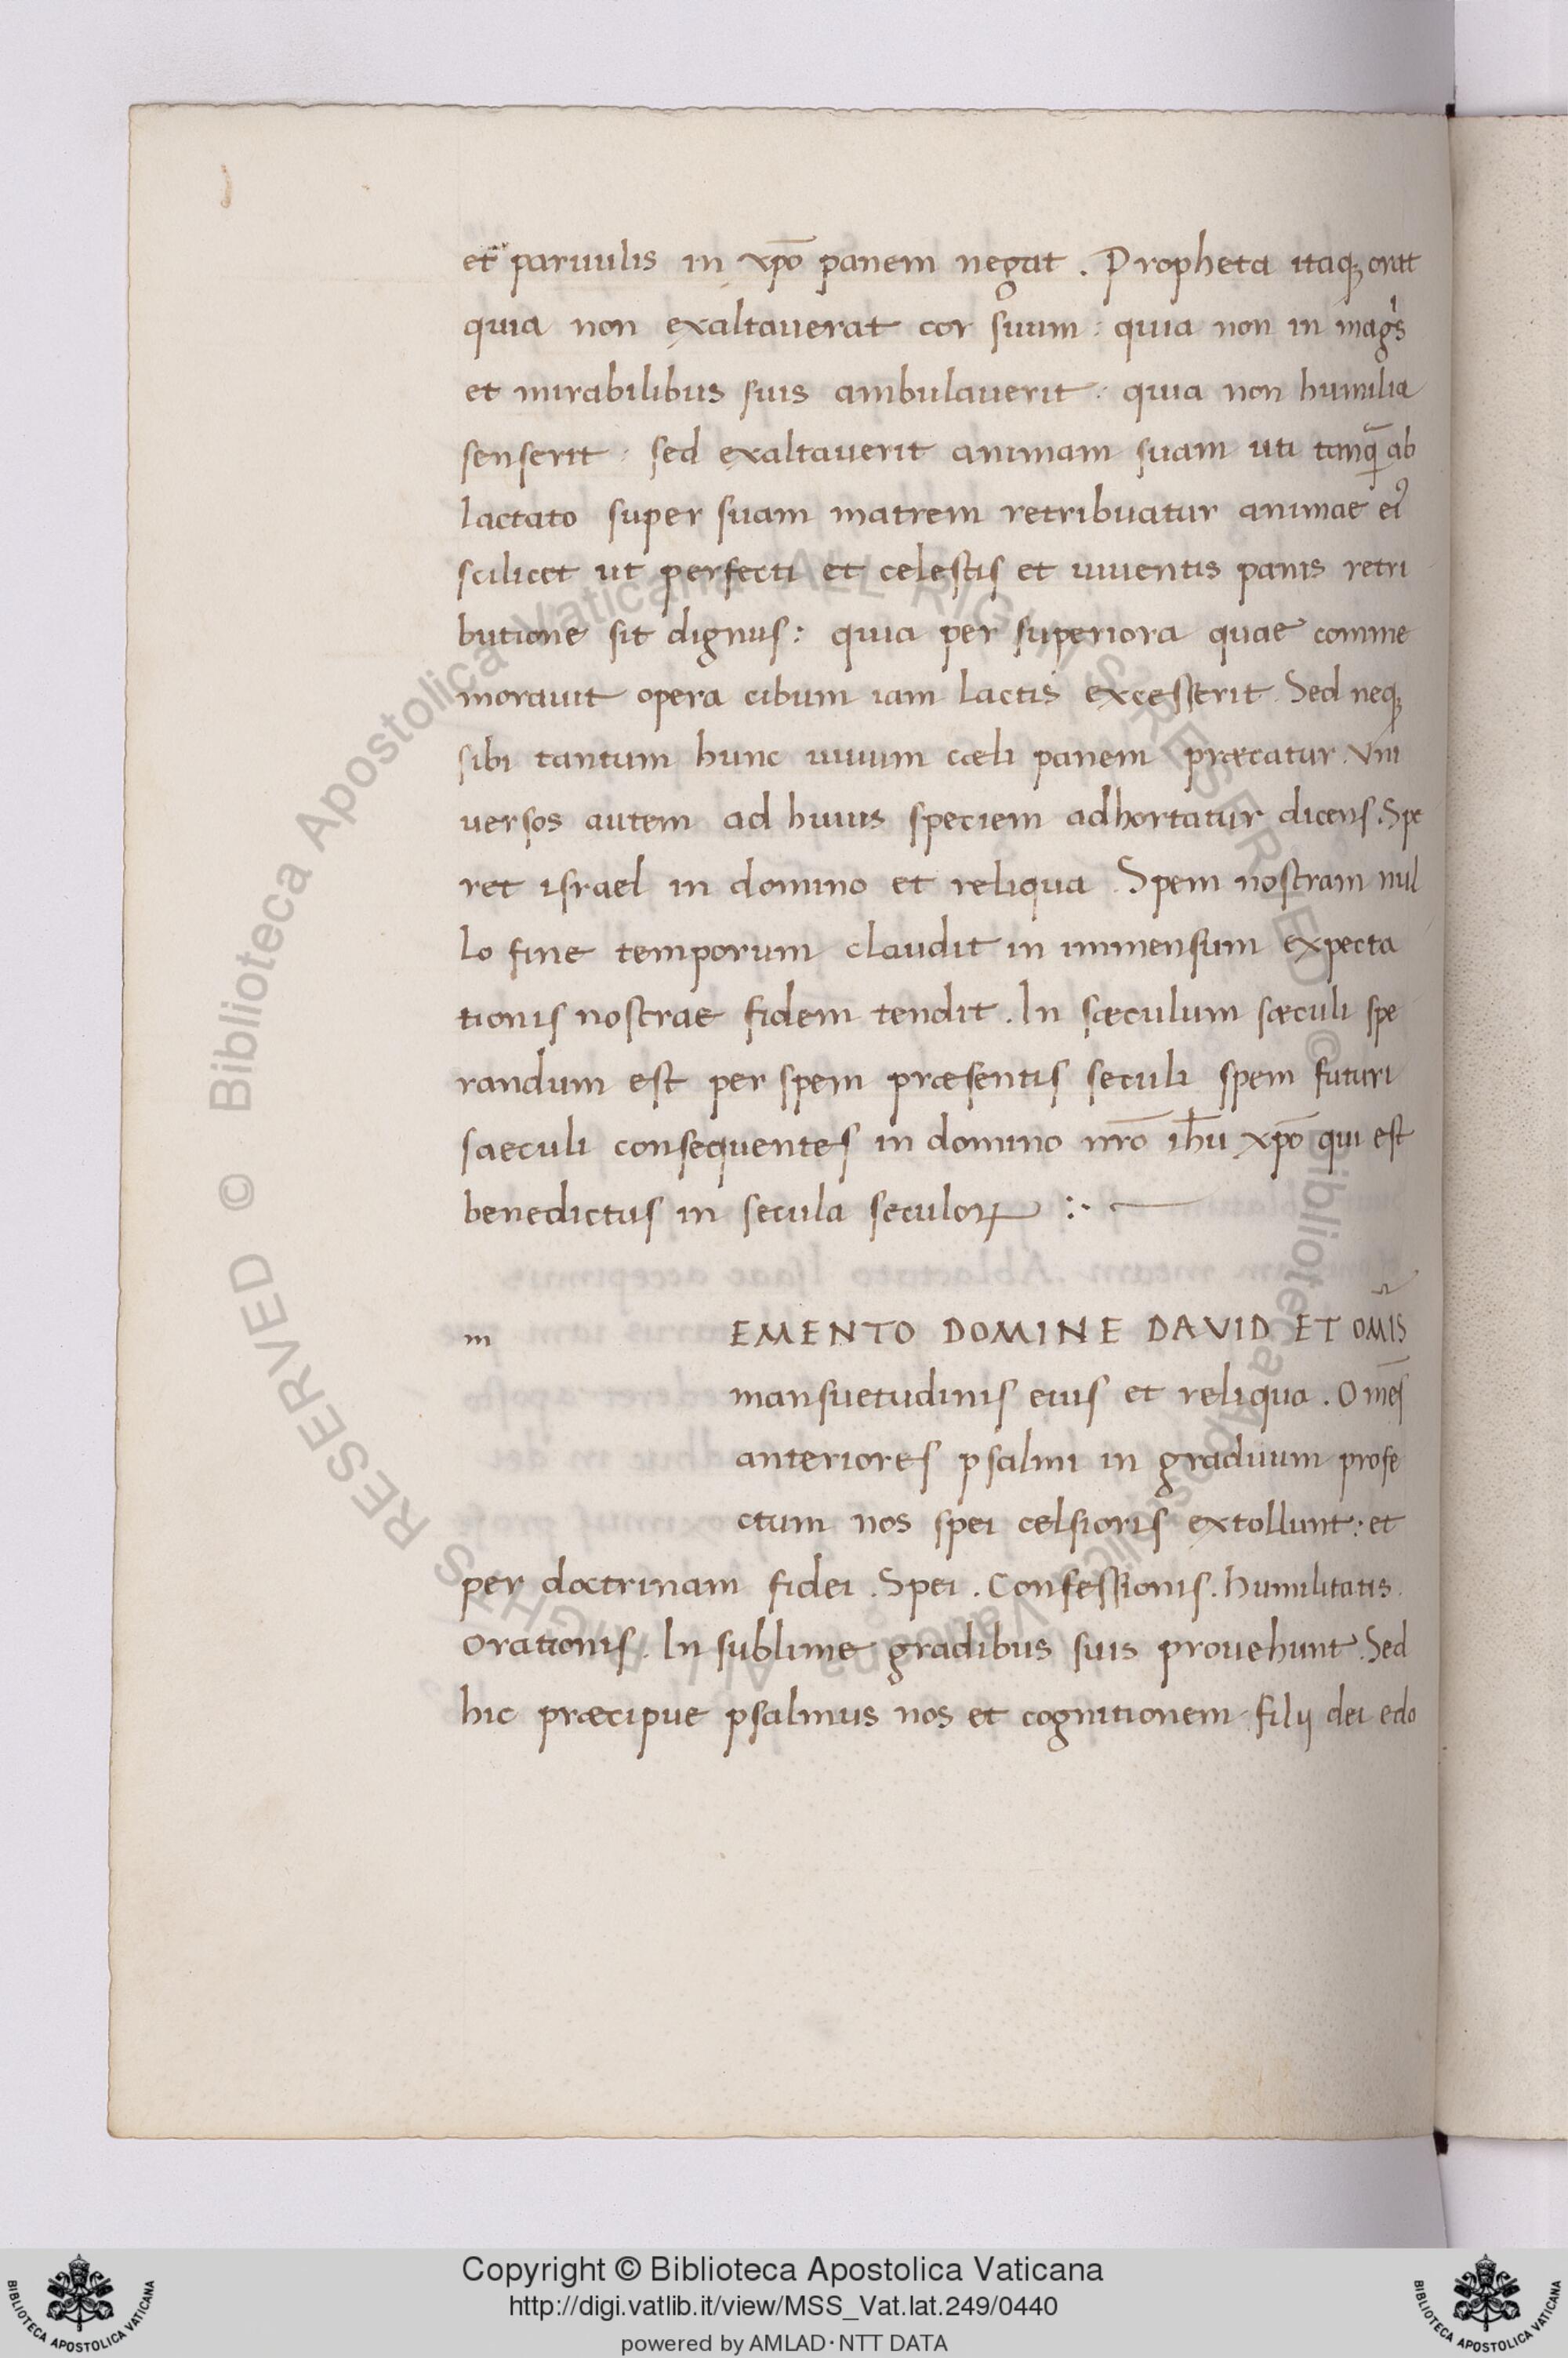 et paruulis in xp̄o panem negat . Propheta itaqꝫ orat
quia non exaltauerat cor suum : quia non in magͥs
et mirabilibus suis ambulauerit : quia non humilia
senserit : sed exaltauerit animam suam uti tanq̄ ab
lactato super suam matrem retribuatur animae eiꝰ
scilicet ut perfecti et celestis et uiuentis panis retri
butione sit dignus : quia per superiora quae comme
morauit opera cibum iam lactis excesserit . Sed neqꝫ
sibi tantum hunc uiuum cæli panem præcatur . Vni
uersos autem ad huius speciem adhortatur dicens . Spe
ret israel in domino et reliqua . Spem nostram nul
lo fine temporum claudit in immensum expecta
tionis nostrae fidem tendit . In sæculum sæculi spe
randum est per spem præsentis seculi spem futuri
saeculi consequentes in domino nr̄o ih̄u xp̄o qui est
benedictus in secula seculoꝝ :·
m EMENTO DOMINE DAVID ET OM̄IS
mansuetudinis eius et reliqua . Om̄es
anteriores psalmi in graduum profe
ctum nos spei celsioris extollunt : et
per doctrinam fidei . Spei . Confessionis . humilitatis .
Orationis . In sublime gradibus suis prouehunt . Sed
hic præcipue psalmus nos et cognitionem filij dei edo
© Biblioteca Apostolica Vaticana ALL RIGHTS RESERVED © Biblioteca Apostolica Vaticana ALL RIGHTS RESERVED
Copyright © Biblioteca Apostolica Vaticana
http://digi.vatlib.it/view/MSS_Vat.lat.249/0440
powered by AMLAD·NTT DATA
BIBLIOTECA APOSTOLICA VATICANA
BIBLIOTECA APOSTOLICA VATICANA